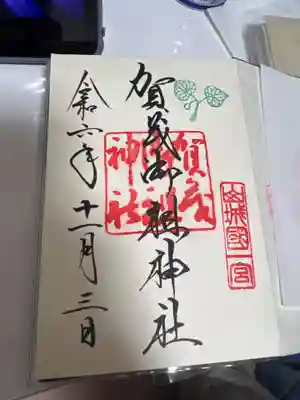 山城國一宮
賀茂御祖神社
賀茂御祖神社
令和六年十一月三日